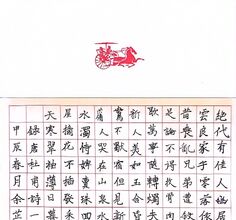 絕代有佳人幽居
雲良家子零落依
昔喪亂兄弟遭殺
足論不得收骨肉
歇萬事隨轉燭夫
新人美如玉合昏
鴦不獨宿但見新
舊人哭在山泉水
水濁侍婢賣珠回
屋摘花不插髮采
天寒翠袖薄日暮
錄唐杜甫詩
甲辰春月